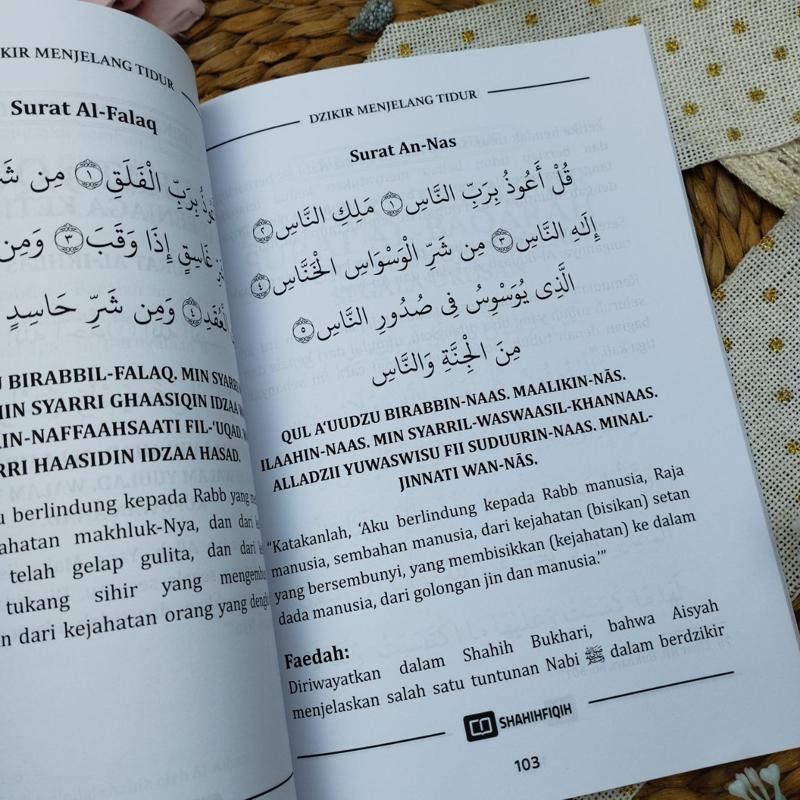 KIR MENJELANG TIDUR
Surat Al-Falaq
بِرَبِّ الْفَلَقِ ١ مِن
غَاسِقٍ إِذَا وَقَبَ ٣ وَمِن
الْعُقَدِ ٤ وَمِن شَرِّ حَاسِدٍ
BIRABBIL-FALAQ. MIN SYARRI
MIN SYARRI GHAASIQIN IDZAA
IN-NAFFAAHSAATI FIL-‘UQAD.
RRI HAASIDIN IDZAA HASAD.
u berlindung kepada Rabb yang
ahatan makhluk-Nya, dan dari
telah gelap gulita, dan dari
tukang sihir yang
n dari kejahatan orang yang
DZIKIR MENJELANG TIDUR
Surat An-Nas
قُلْ أَعُوذُ بِرَبِّ النَّاسِ ١ مَلِكِ النَّاسِ ٢
إِلَٰهِ النَّاسِ ٣ مِن شَرِّ الْوَسْوَاسِ الْخَنَّاسِ ٤
الَّذِى يُوَسْوِسُ فِى صُدُورِ النَّاسِ ٥
مِنَ الْجِنَّةِ وَالنَّاسِ
QUL A‘UUDZU BIRABBIN-NAAS. MAALIKIN-NĀS.
ILAAHIN-NAAS. MIN SYARRIL-WASWAASIL-KHANNAAS.
ALLADZII YUWASWISU FII SUDUURIN-NAAS. MINAL-
JINNATI WAN-NĀS.
“Katakanlah, ‘Aku berlindung kepada Rabb manusia, Raja
manusia, sembahan manusia, dari kejahatan (bisikan) setan
yang bersembunyi, yang membisikkan (kejahatan) ke dalam
dada manusia, dari golongan jin dan manusia.’”
Faedah:
Diriwayatkan dalam Shahih Bukhari, bahwa Aisyah
menjelaskan salah satu tuntunan Nabi ﷺ dalam berdzikir
SHAHIHFIQIH
103